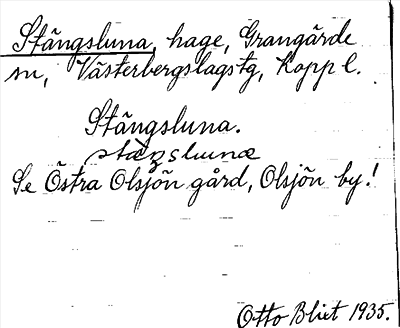 Stängsluna, hage, Grangärde
sn, Västerbergslags tg, Kopp l.
Stängsluna.
Se Östra Olsjön gård, Olsjön by!
Otto Blixt 1935.